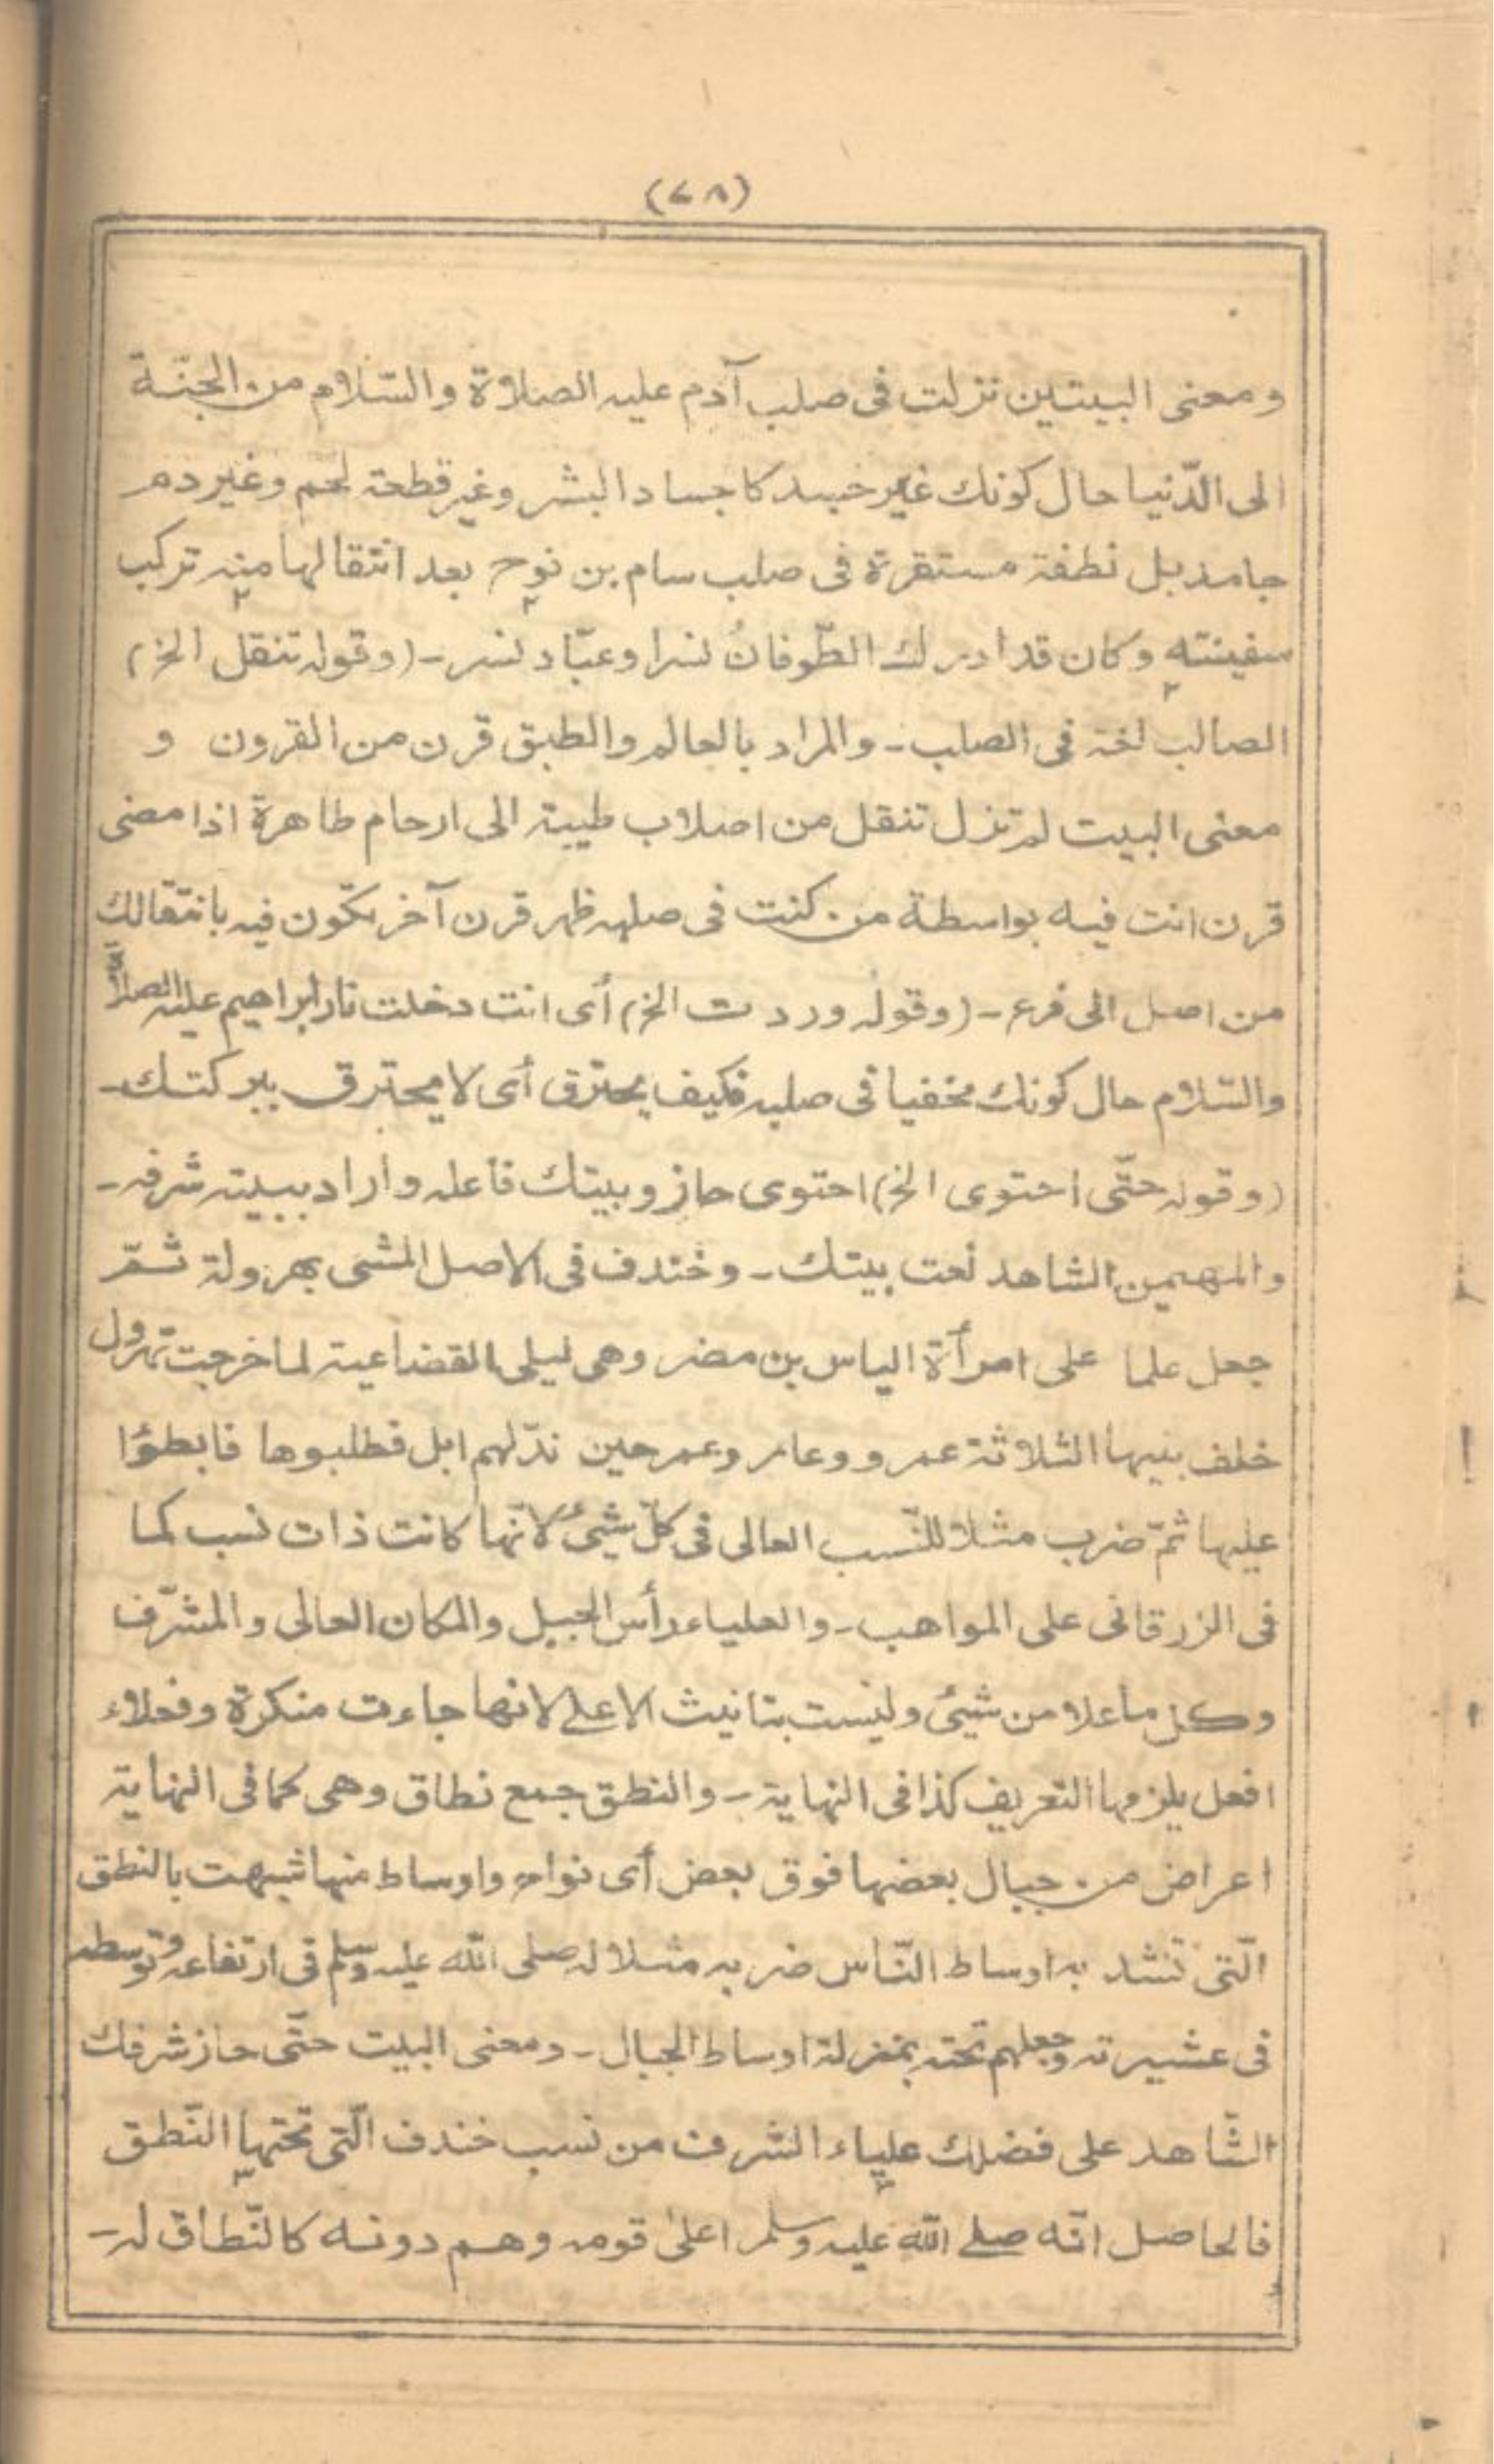 (٧٨)
ومعنى البيتين نزلت فى صلب آدم عليه الصلاة والسّلام من الجنّة
الى الدّنيا حال كونك غير جسد كاجساد البشر وغير قطعة لحم وغير دم
جامد بل نطفة مستقرة فى صلب سام بن نوح بعد انتقالها منه تركب
سفينته وكان قد ادرك الطّوفانُ نسرا وعبّاد نسر - (وقوله تنقل الخ)
الصالب لغة فى الصلب - والمراد بالعالم والطبق قرن من القرون و
معنى البيت لم تزل تنقل من اصلاب طيبة الى ارحام طاهرة اذا مضى
قرن انت فيه بواسطة من كنت فى صلبه ظهر قرن آخر تكون فيه بانتقالك
من اصل الى فرع - (وقوله وردت الخ) أى انت دخلت نار ابراهيم عليه الصلاة
والسّلام حال كونك مخفيا فى صلبه فكيف يحترق أى لا يحترق ببركتك -
(وقوله حتّى احتوى الخ) احتوى حاز وبيتك فاعله وأراد ببيته شرفه -
والمهيمن الشاهد نعت بيتك - وخندف فى الاصل المشى بهرولة ثمّ
جعل علما على امرأة الياس بن مضر وهى ليلى القضاعية لما خرجت تهرول
خلف بنيها الثلاثة عمرو وعامر وعمر حين ندّ لهم ابل فطلبوها فابطؤا
عليها ثمّ ضرب مثلا للنّسب العالى فى كلّ شيئ لانّها كانت ذات نسب كما
فى الزرقانى على المواهب - والعلياء رأس الجبل والمكان العالى والمشرّف
وكل ما علا من شيئ وليست بتانيث الاعلى لانها جاءت منكرة وفعلاء
افعل يلزمها التعريف كذا فى النهاية - والنطق جمع نطاق وهى كما فى النهاية
اعراض من جبال بعضها فوق بعض أى نواح واوساط منها شبهت بالنطق
الّتى تشد به اوساط النّاس ضربه مثلا له صلى الله عليه وسلم فى ارتفاعه وتوسطه
فى عشيرته وجعلهم تحته بمنزلة اوساط الجبال - ومعنى البيت حتّى حاز شرفك
الشّاهد على فضلك علياء الشرف من نسب خندف الّتى تحتها النّطق
فالحاصل انّه صلى الله عليه وسلم اعلىٰ قومه وهم دونه كالنّطاق له -